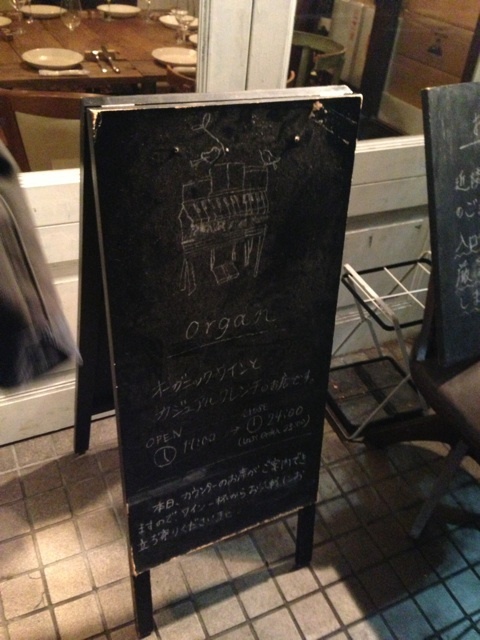 organ
オーガニックワインと
カジュアルフレンチのお店です。
OPEN 17:00 → CLOSE 24:00
(Last order 23:00)
本日、カウンターのお席がご案内でき
ますのでワイン一杯からお気軽にお
立ち寄りくださいませ
近隣
のご
入口